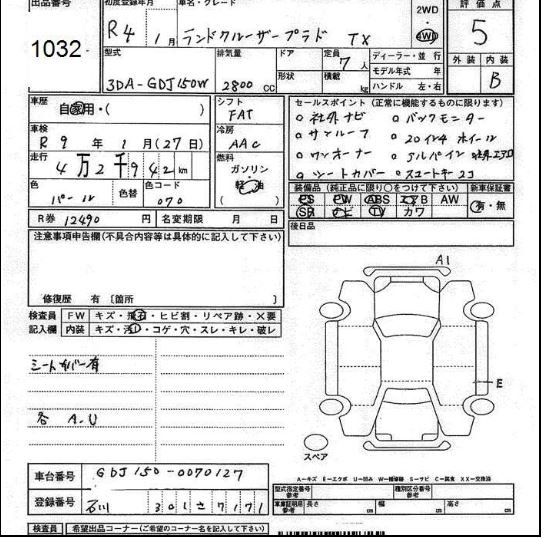 出品番号 初度登録年月 車名・グレード 2WD 評価点
1032- R4年1月 ランドクルーザープラド TX 4WD 5
型式 排気量 ドア 定員 ディーラー・並行 外装 内装
3DA-GDJ150W 2800CC 形状 7人 積載 kg モデル年式 年 B
ハンドル 左・右
車歴 自家用・( ) シフト FAT
セールスポイント(正常に機能するものに限ります)
車検 R9年1月(27日) 冷房 AAC
○社外ナビ ○バックモニター
○サンルーフ ○20インチホイール
走行 4万2千942km 燃料 ガソリン 軽油
○ワンオーナー
○シートカバー ○スマートキー2コ
色 パール 色替 色コード 070
装備品(純正品に限り○をつけて下さい) 新車保証書
PS PW ABS エアB AW 有・無
SR ナビ TV カワ
R券 12490円 名変期限 月 日
後日品
注意事項申告欄(不具合内容等は具体的に記入して下さい)
A1
修復歴 有[箇所 ]
検査員 FW キズ・飛石・ヒビ割・リペア跡・X要
記入欄 内装 キズ・汚れ・コゲ・穴・スレ・キレ・破レ
シートカバー有
E
各 A.U
スペア
A-キズ E-エクボ U-凹み W-補修跡 S-サビ C-腐食 XX-交換済
車台番号 GDJ150-0070127
型式指定番号 参考 種別区分番号 参考
登録番号 石川 301 さ 7171
車庫証明用 参考 長さ 幅 高さ
検査員 希望出品コーナー(ご希望のコーナー名を記入して下さい)